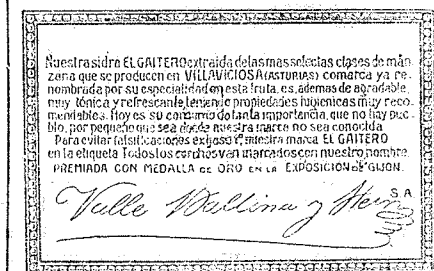 Nuestra sidra EL GAITERO extraida de las mas selectas clases de man
zana que se producen en VILLAVICIOSA (ASTURIAS) comarca ya re-
nombrada por su especialidad en esta fruta, es, ademas de agradable,
muy tónica y refrescante, teniendo propiedades higienicas muy reco-
mendables. Hoy es su consumo de tanta importancia, que no hay pue-
blo, por pequeño que sea donde nuestra marca no sea conocida
Para evitar falsificaciones exijase nuestra marca EL GAITERO
en la etiqueta Todos los corchos van marcados con nuestro nombre
PREMIADA CON MEDALLA DE ORO EN LA EXPOSICION DE GIJON.
Valle Ballina y
S. A.